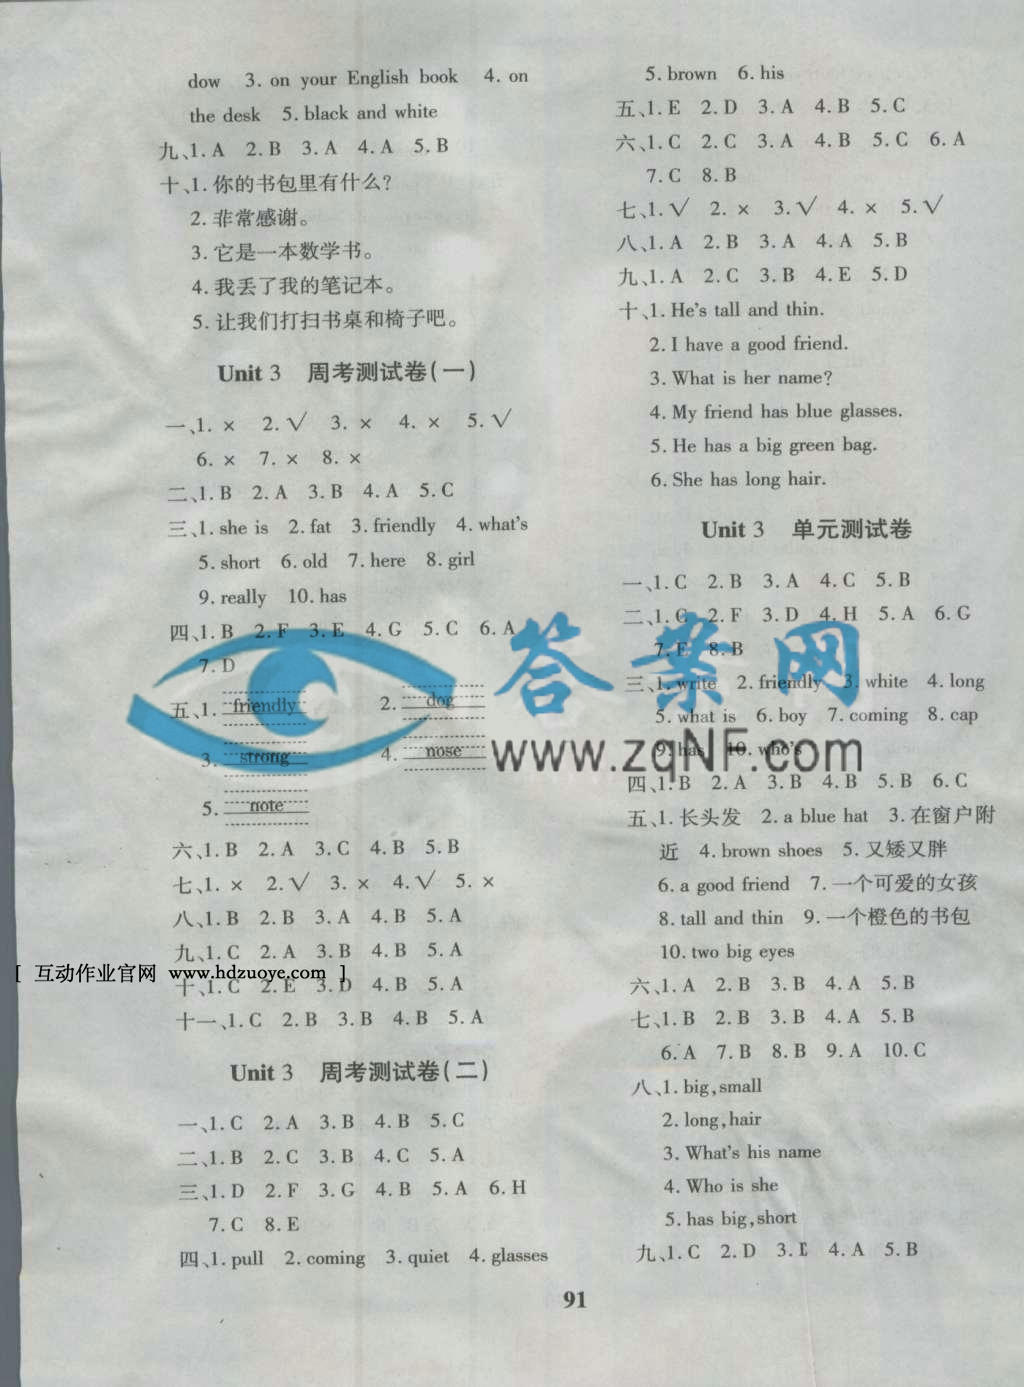 dow 3. on your English book 4. on
the desk 5. black and white
九、1. A 2. B 3. A 4. A 5. B
十、1. 你的书包里有什么?
2. 非常感谢。
3. 它是一本数学书。
4. 我丢了我的笔记本。
5. 让我们打扫书桌和椅子吧。
Unit 3 周考测试卷(一)
一、1. × 2. √ 3. × 4. × 5. √
6. × 7. × 8. ×
二、1. B 2. A 3. B 4. A 5. C
三、1. she is 2. fat 3. friendly 4. what's
5. short 6. old 7. here 8. girl
9. really 10. has
四、1. B 2. F 3. E 4. G 5. C 6. A
7. D
五、1. friendly 2. dog
3. strong 4. nose
5. note
六、1. B 2. A 3. C 4. B 5. B
七、1. × 2. √ 3. × 4. √ 5. ×
八、1. B 2. B 3. A 4. B 5. A
九、1. C 2. A 3. B 4. B 5. A
[ 互动作业官网 www.hdzuoye.com ]
十、1. C 2. E 3. D 4. B 5. A
十一、1. C 2. B 3. B 4. B 5. A
Unit 3 周考测试卷(二)
一、1. C 2. A 3. B 4. B 5. C
二、1. B 2. C 3. B 4. C 5. A
三、1. D 2. F 3. G 4. B 5. A 6. H
7. C 8. E
四、1. pull 2. coming 3. quiet 4. glasses
5. brown 6. his
五、1. E 2. D 3. A 4. B 5. C
六、1. C 2. C 3. A 4. B 5. C 6. A
7. C 8. B
七、1. √ 2. × 3. √ 4. × 5. √
八、1. A 2. B 3. A 4. A 5. B
九、1. A 2. C 3. B 4. E 5. D
十、1. He's tall and thin.
2. I have a good friend.
3. What is her name?
4. My friend has blue glasses.
5. He has a big green bag.
6. She has long hair.
Unit 3 单元测试卷
一、1. C 2. B 3. A 4. C 5. B
二、1. C 2. F 3. D 4. H 5. A 6. G
7. E 8. B
三、1. write 2. friendly 3. white 4. long
5. what is 6. boy 7. coming 8. cap
9. has 10. who's
答案网
www.zqNF.com
四、1. B 2. A 3. B 4. A 5. B 6. C
五、1. 长头发 2. a blue hat 3. 在窗户附
近 4. brown shoes 5. 又矮又胖
6. a good friend 7. 一个可爱的女孩
8. tall and thin 9. 一个橙色的书包
10. two big eyes
六、1. A 2. B 3. B 4. A 5. B
七、1. B 2. B 3. B 4. A 5. B
6. A 7. B 8. B 9. A 10. C
八、1. big,small
2. long,hair
3. What's his name
4. Who is she
5. has big,short
九、1. C 2. D 3. E 4. A 5. B
91